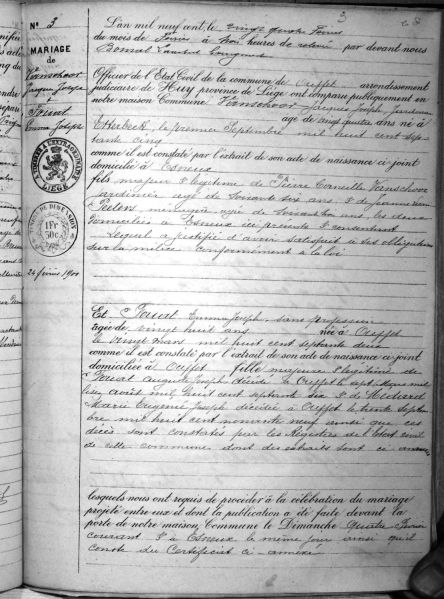 N° 3
MARIAGE
DE
Vanschoor
Jacques Joseph
&
Emma Joseph
24 février 1900
3
L'an mil neuf cent le vingt quatre février
du mois de février à trois heures de relevée par devant nous
Officier de l'Etat Civil de la commune de Ouffet arrondissement
judiciaire de Huy province de Liège ont comparu publiquement en
notre maison Commune Vanschoor Jacques Joseph
âgé de vingt quatre ans né à
Etterbeek, le premier Septembre mil huit cent sep-
tante cinq
comme il est constaté par l'extrait de son acte de naissance ci joint
domicilié à Esneux
fils majeur & légitime de Pierre Corneille Vanschoor
jardinier âgé de soixante six ans & de Jeanne
ménagère âgée de ans, les deux
domiciliés à Esneux ici présents & consentants
Lequel a justifié d'avoir satisfait à ses obligations
sur la milice conformément à la loi
Et Emma Joseph sans profession
âgée de vingt huit ans née à Ouffet
le vingt mars mil huit cent septante deux
comme il est constaté par l'extrait de son acte de naissance ci joint
domiciliée à Ouffet fille majeure & légitime de
Joseph décédé à Ouffet le sept mil
lisez août mil huit cent septante six & de
Marie Joseph décédée à Ouffet le trente Septem-
bre mil huit cent nonante neuf ainsi que ces
décès sont constatés par les Registres de l'état civil
de cette commune dont des extraits sont ci annexés
lesquels nous ont requis de procéder à la célébration du mariage
projeté entre eux et dont la publication a été faite devant la
porte de notre maison Commune le Dimanche quatre février
courant & à Esneux le même jour ainsi qu'il
conste du Certificat ci annexé